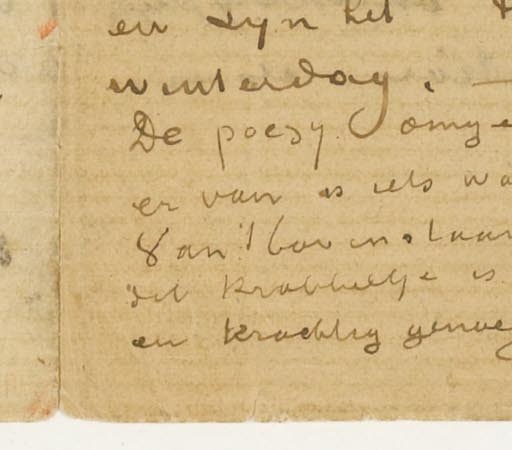 en zyn het
winterdag. —
De poesy omge
er van is iets wa
Van 't bovenstaan
dit krabbeltje is
en krachtig genoeg